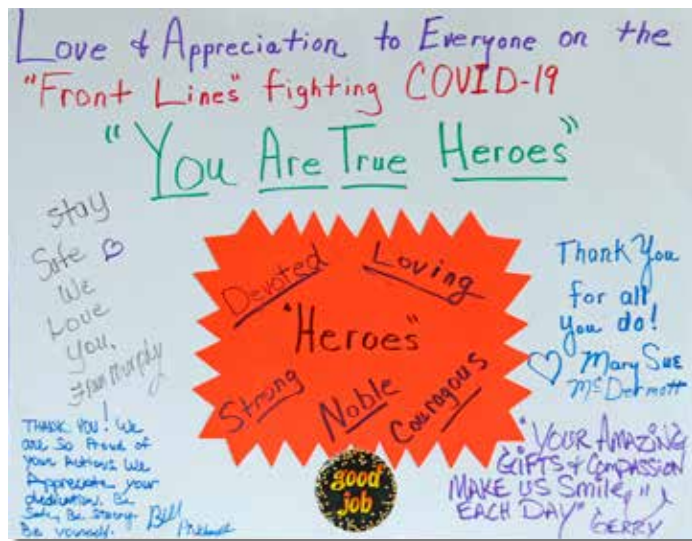 Love & Appreciation to Everyone on the
"Front Lines" fighting COVID-19
"You Are True Heroes"
Stay
Safe
We
Love
You,
Murphy
Devoted
Loving
"Heroes"
Strong
Noble
Couragous
good
job
Thank You
for all
you do!
Mary Sue
McDermott
THANK YOU! We
are So Proud of
your Actions We
Appreciate your
dedication. Be
Safe, Be Strong.
Be yourself.
Bill
"YOUR AMAZING
GIFTS & COMPASSION
MAKE US Smile,
EACH DAY"
GERRY